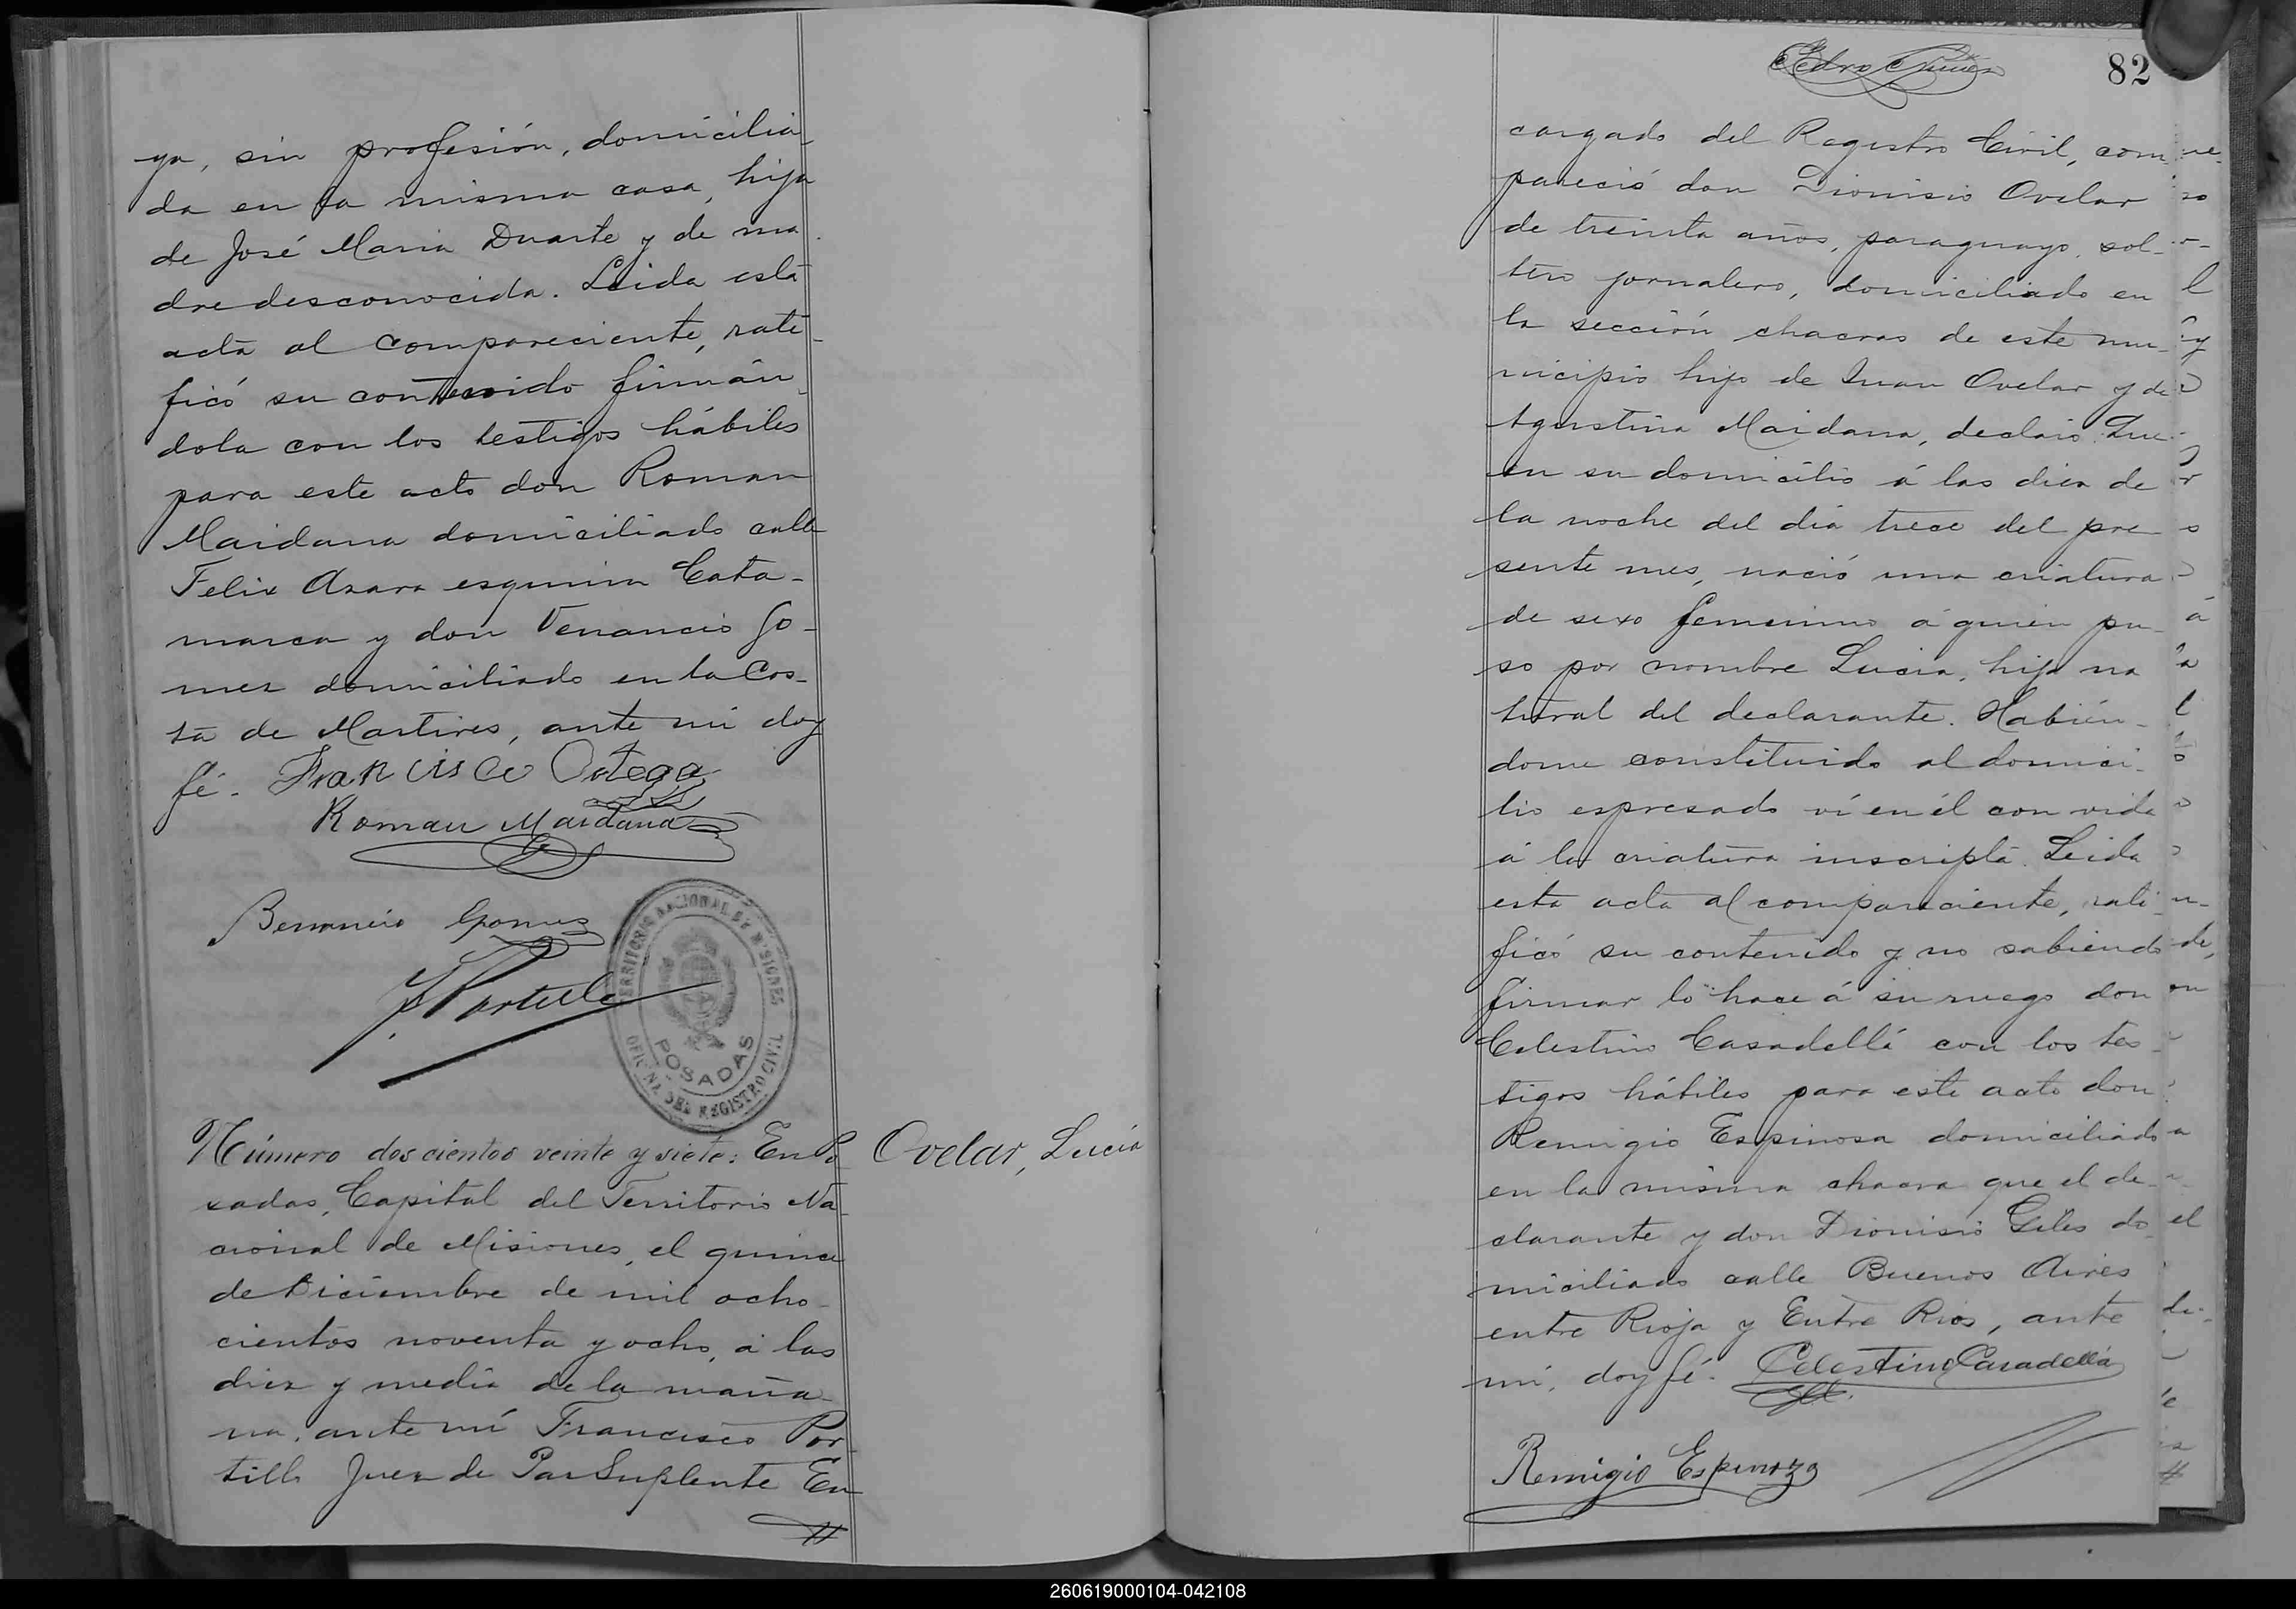 ya, sin profesión, domicilia
da en la misma casa, hija
de José Maria Duarte y de ma
dre desconocida. Leida esta
acta al compareciente, rati
ficó su contenido firmán
dola con los testigos hábiles
para este acto don Roman
Maidana domiciliado calle
Felix Azara esquina Cata-
marca y don Venancio Go-
mez domiciliado en la Cos-
ta de Martires, ante mi doy
fé. Francisco Ortega
Roman Maidana
Benancio Gomez
F Portillo
TERRITORIO NACIONAL DE MISIONES
POSADAS
OFICINA DEL REGISTRO CIVIL
Número doscientos veinte y siete: En Po
sadas, Capital del Territorio Na-
cional de Misiones, el quince
de Diciembre de mil ocho-
cientos noventa y ocho, á las
diez y media de la maña-
na, ante mí Francisco Por-
tillo Juez de Paz Suplente En
Ovelar, Lucía
82
cargado del Registro Civil, com
pareció don Dionisio Ovelar
de treinta años, paraguayo, sol-
tero jornalero, domiciliado en
la sección chacras de este mu-
nicipio hijo de Juan Ovelar y de
Agustina Maidana, declaró: Que
en su domicilio á las diez de
la noche del dia trece del pre
sente mes, nació una criatura
de sexo femenino á quien pu-
so por nombre Lucia, hija na
tural del declarante. Habién-
dome constituido al domici-
lio espresado ví en él con vida
á la criatura inscripta. Leida
esta acta al compareciente, rati-
ficó su contenido y no sabiendo
firmar lo hace á su ruego don
Celestino Casadellá con los tes-
tigos hábiles para este acto don
Remigio Espinosa domiciliado
en la misma chacra que el de-
clarante y don Dionisio Giles do
miciliado calle Buenos Aires
entre Rioja y Entre Rios, ante
mi, doy fé. Celestino Casadellá
Remigio Espinoza
260619000104-042108